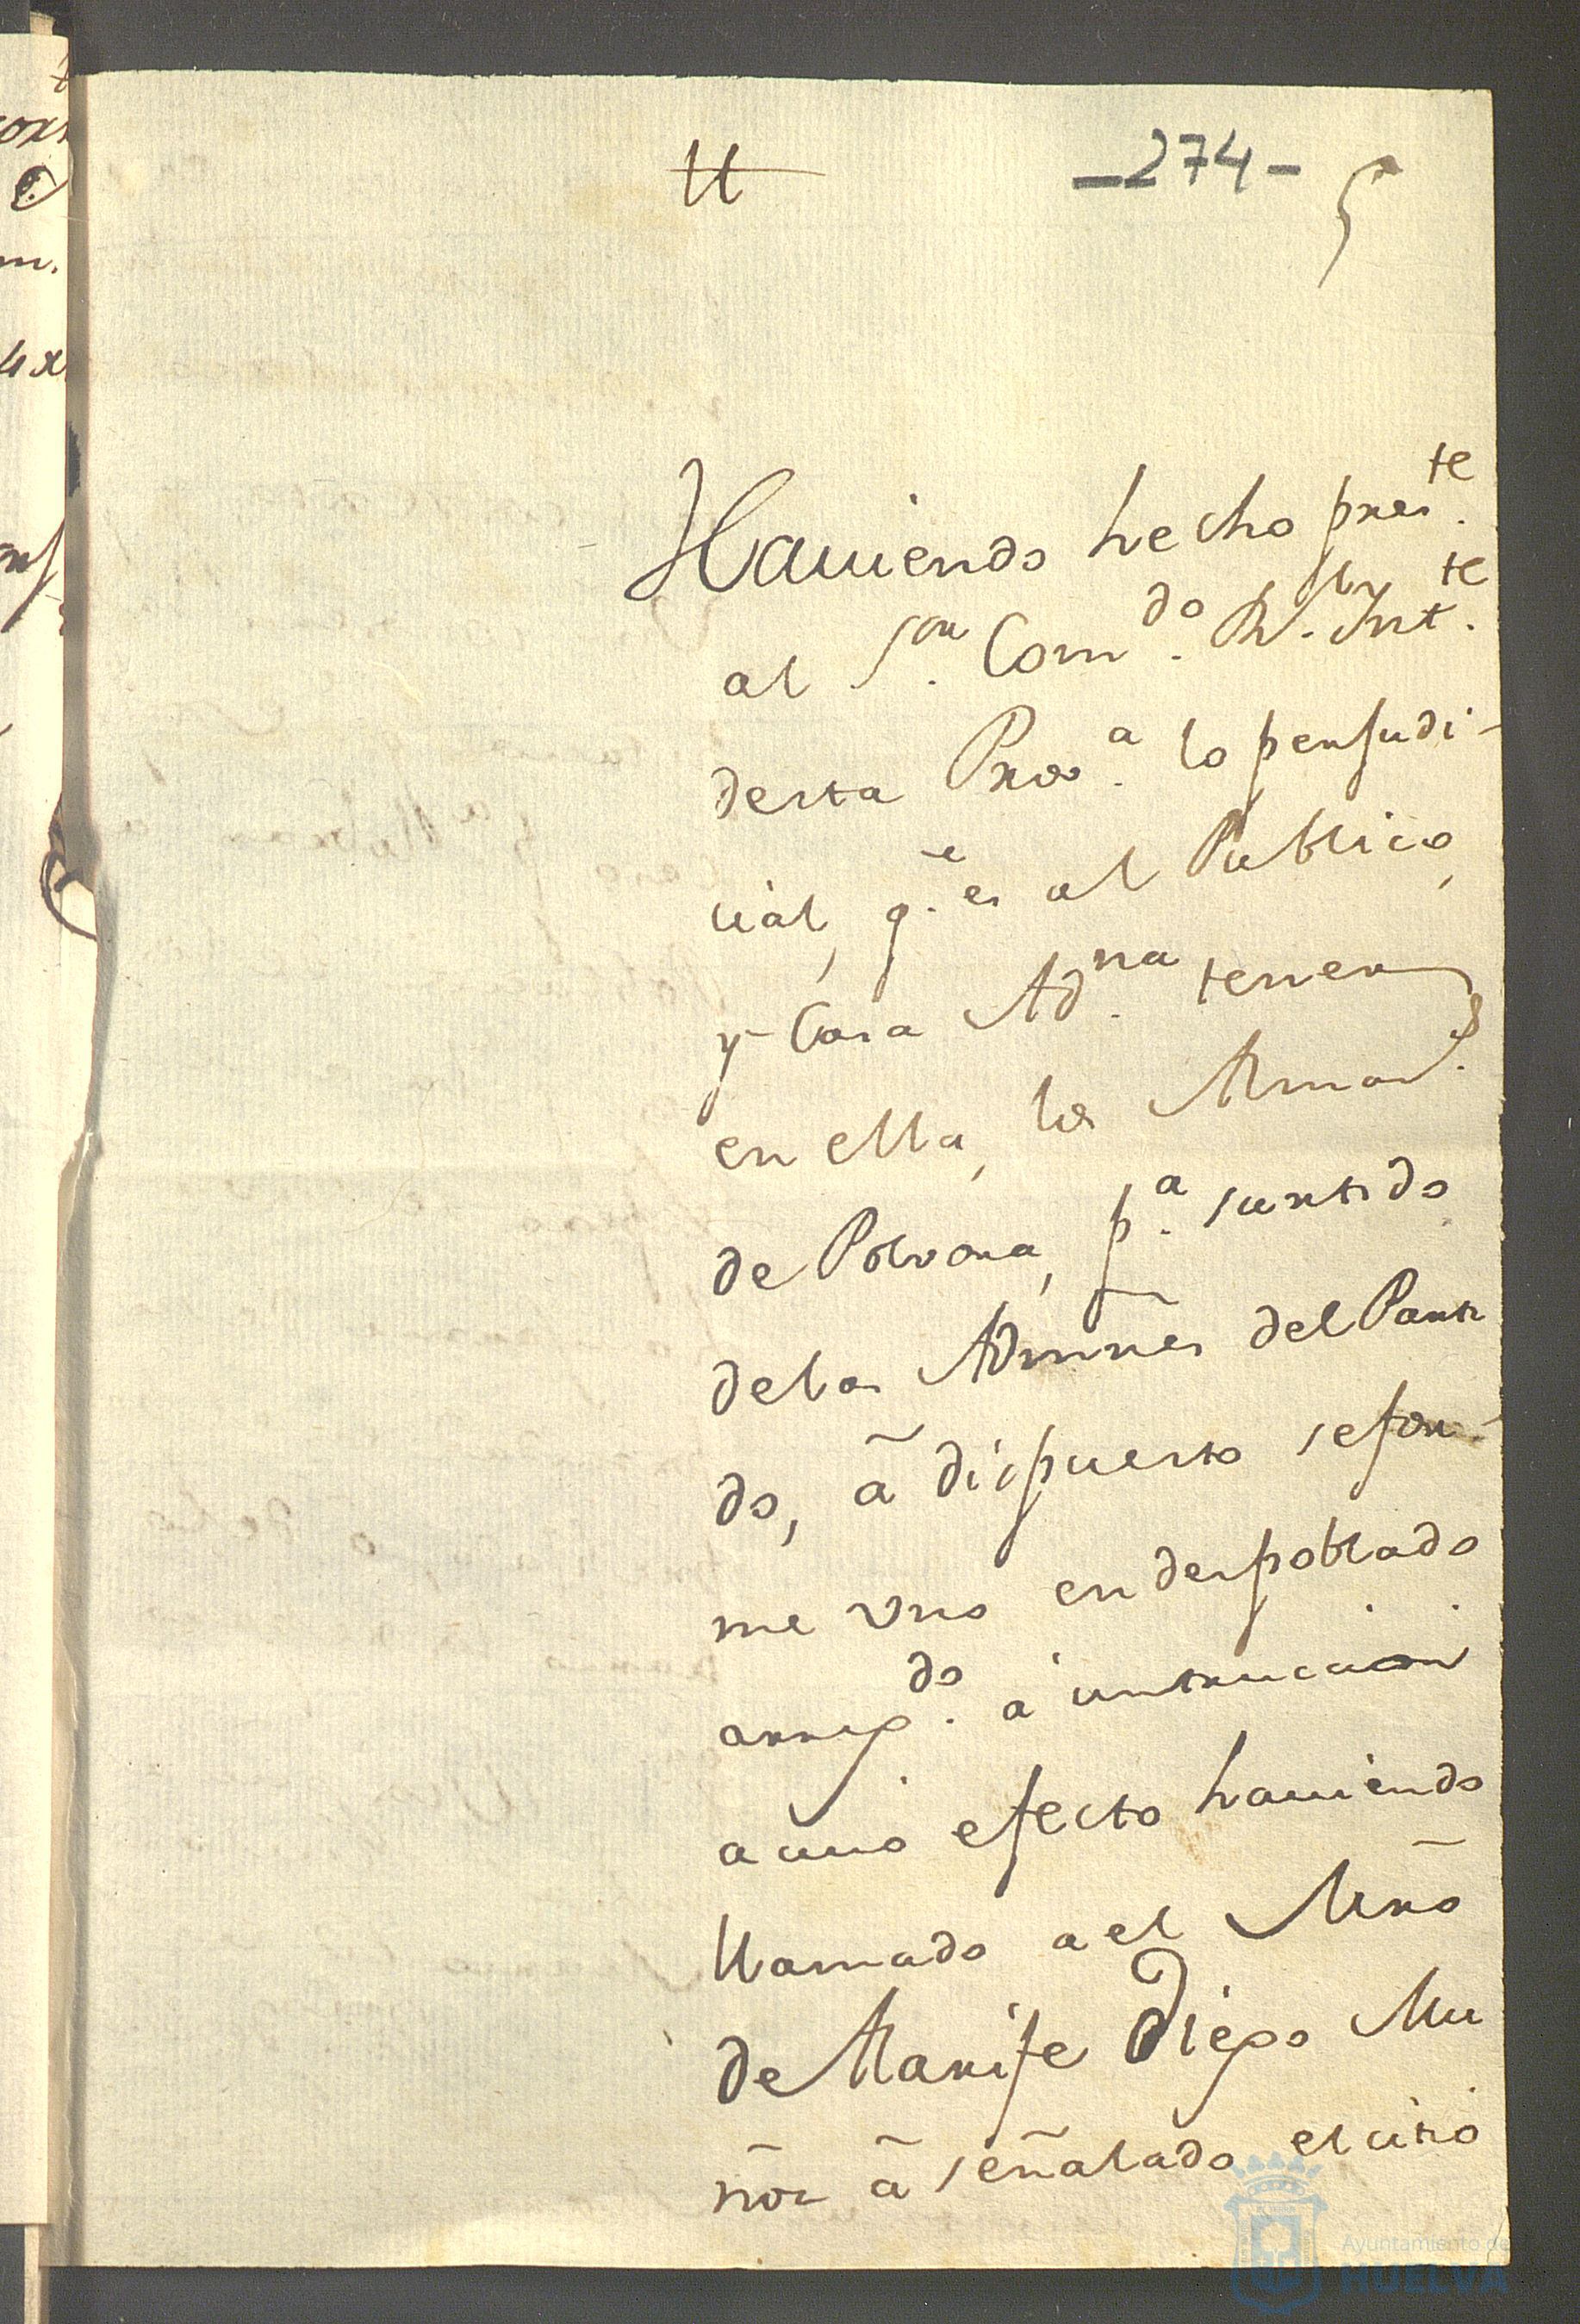 -274-
Haviendo hecho pres.te
al S.or Com.do R.l Int.te
desta Prov.a lo perjudi-
cial, q.e es al Publico,
y Casa Ad.na tener
en ella, los Almaz.s
de Polvora, p.a surtido
de las Admnes del Parti
do, â dispuesto se for-
me vno en despoblado
arreg.do a instruccion
a cuio efecto haviendo
llamado a el Mrõ
de Alarife Diego Mu
ñoz â señalado el citio
Ayuntamiento de
HUELVA